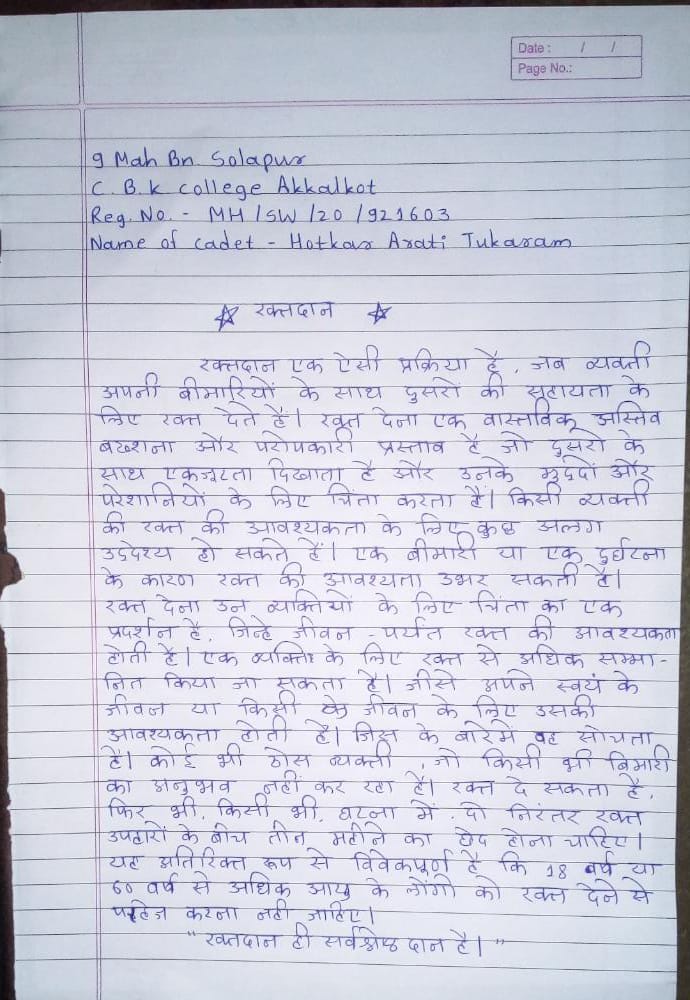 Date : / /
Page No.:
9 Mah Bn. Solapur
C. B. k college Akkalkot
Reg. No. - MH/SW/20/921603
Name of cadet - Hotkar Arati Tukaram
☆ रक्तदान ☆
रक्तदान एक ऐसी प्रक्रिया है, जब व्यक्ती
अपनी बीमारियों के साथ दुसरों की सहायता के
लिए रक्त देते है। रक्त देना एक वास्तविक अस्तिव
बख्शना और परोपकारी प्रस्ताव है जो दुसरो के
साथ एकजूटता दिखाता है और उनके मुद्दों और
परेशानियों के लिए चिंता करता है। किसी व्यक्ती
की रक्त की आवश्यकता के लिए कुछ अलग
उद्देश्य हो सकते हैं। एक बीमारी या एक दुर्घटना
के कारण रक्त की आवश्यता उभर सकती है।
रक्त देना उन व्यक्तियों के लिए चिंता का एक
प्रदर्शन है, जिन्हे जीवन-पर्यंत रक्त की आवश्यकता
होती है। एक व्यक्ति के लिए रक्त से अधिक सम्मा-
नित किया जा सकता है। जीसे अपने स्वयं के
जीवन या किसी के जीवन के लिए उसकी
आवश्यकता होती है। जिस के बारेमें वह सोचता
है। कोई भी ठोस व्यक्ती, जो किसी भी बिमारी
का अनुभव नहीं कर रहा है। रक्त दे सकता है,
फिर भी, किसी भी, घटना में, दो निरंतर रक्त
उपहारों के बीच तीन महीने का छेद होना चाहिए।
यह अतिरिक्त रूप से विवेकपूर्ण है कि 18 वर्ष या
60 वर्ष से अधिक आयु के लोंगो को रक्त देने से
परहेज करना नही चाहिए।
"रक्तदान ही सर्वश्रेष्ठ दान है।"